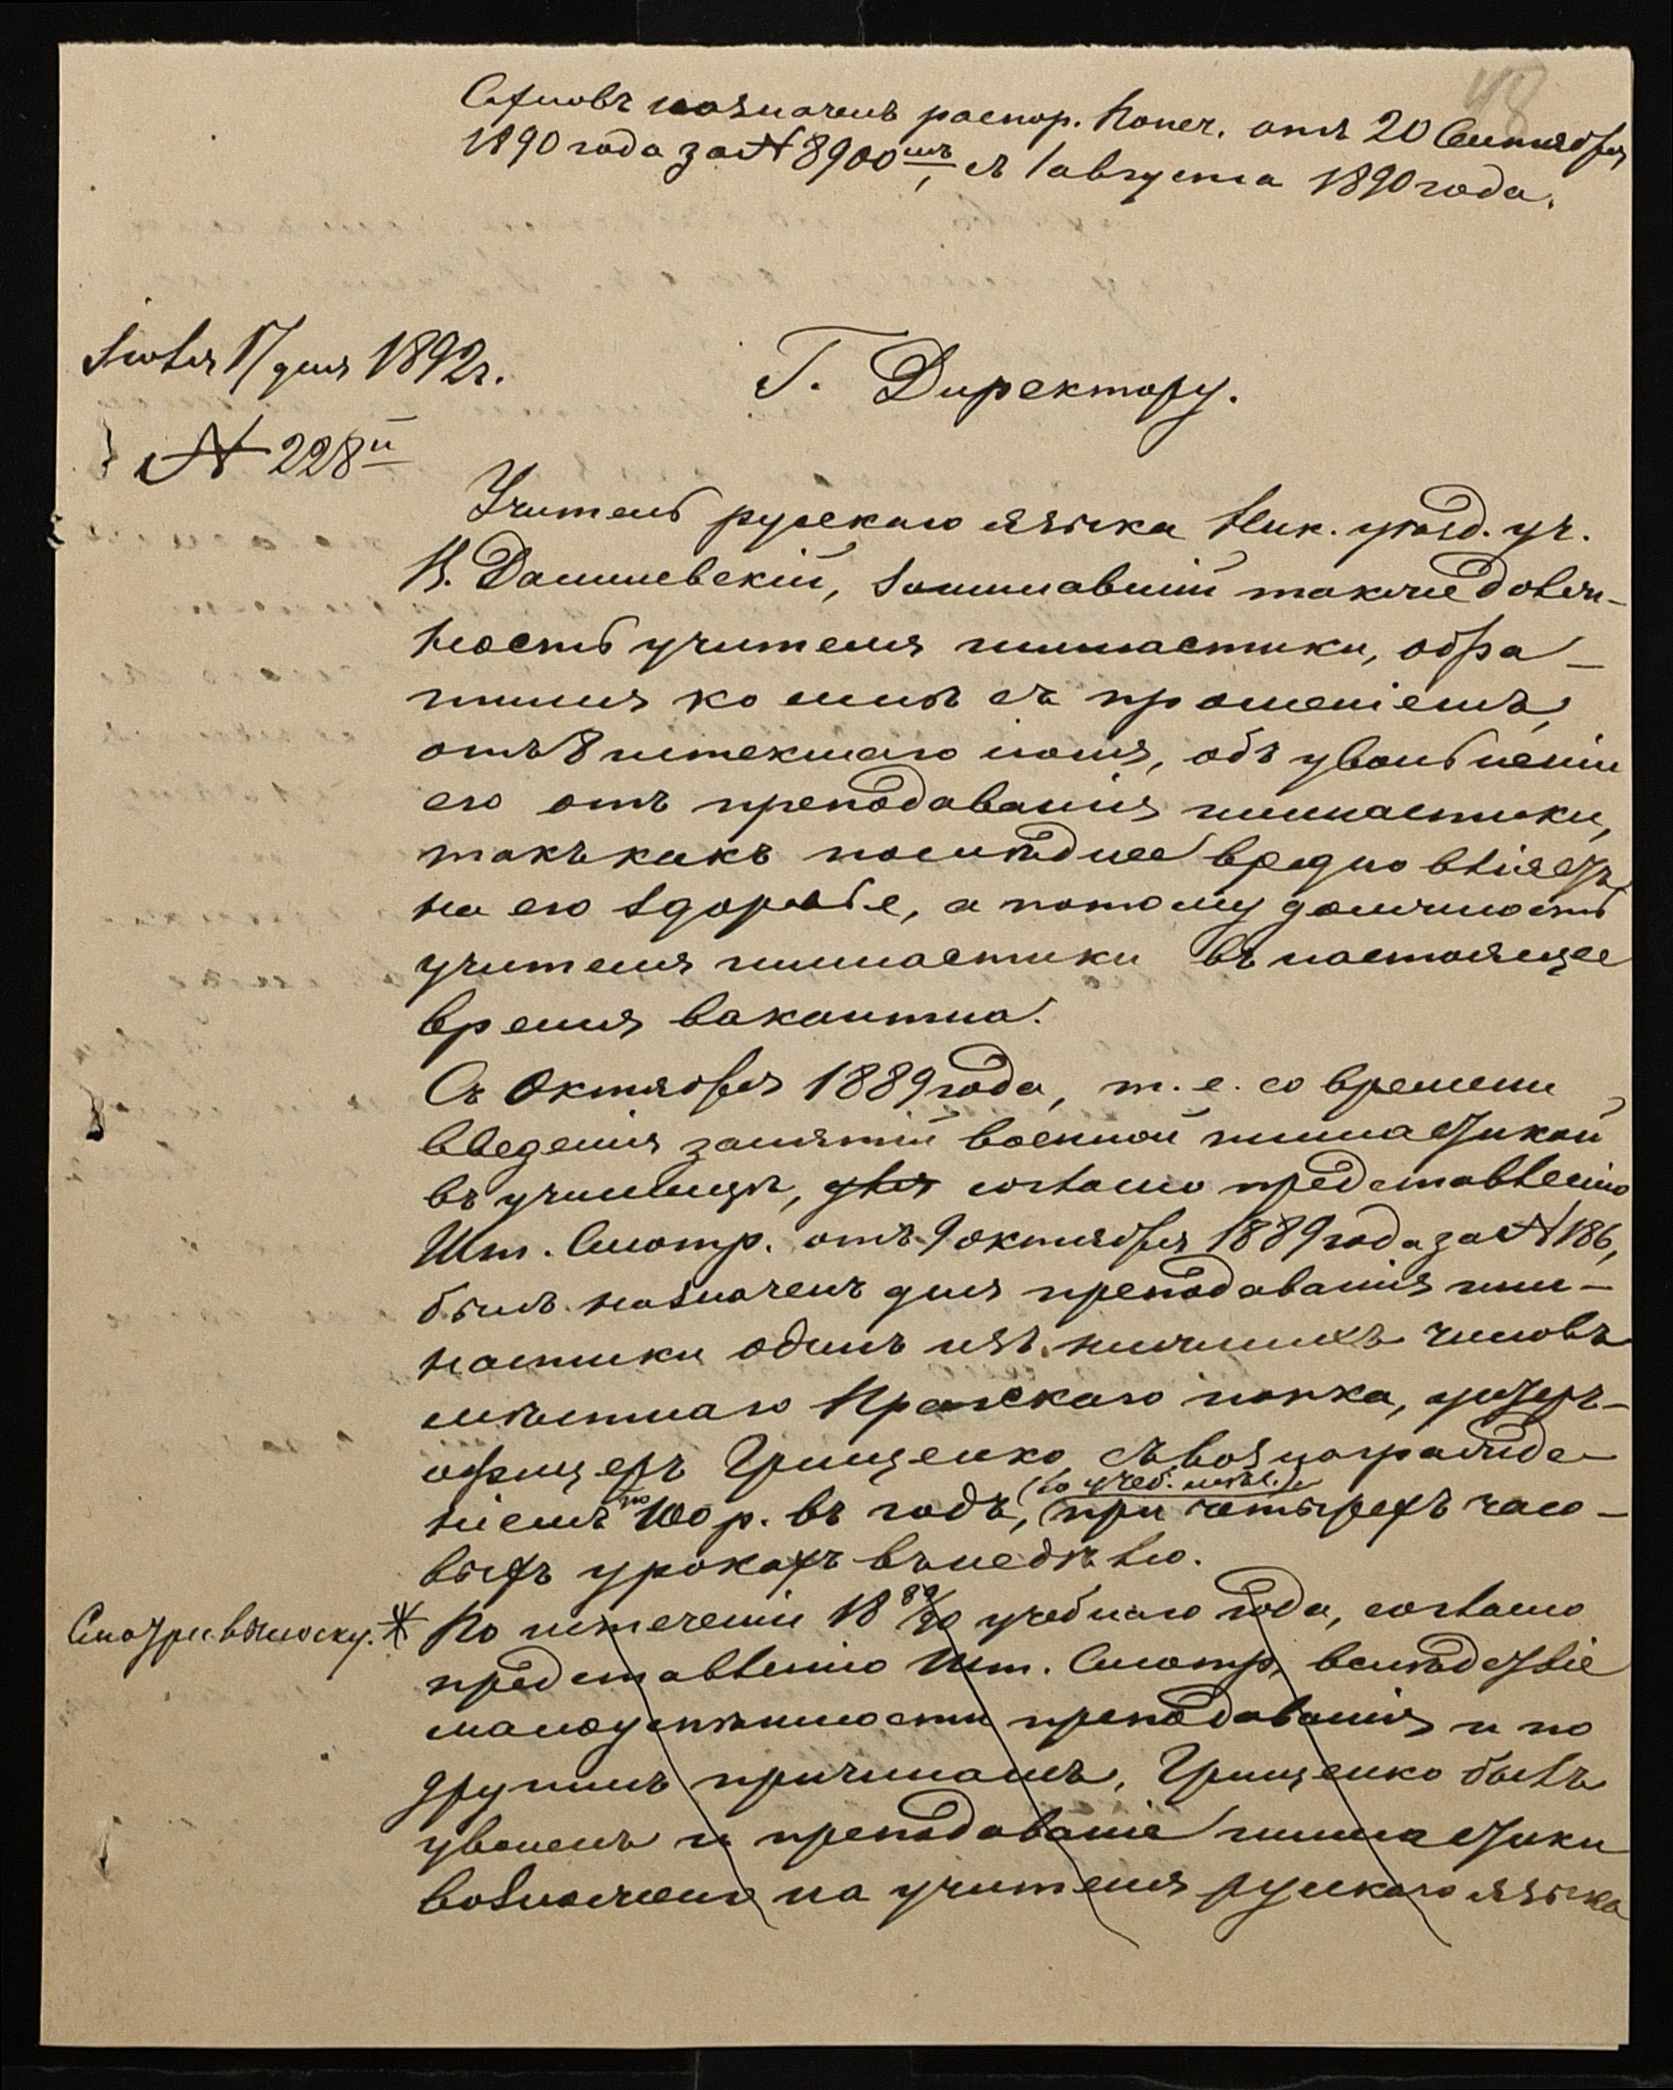 48
назначенъ распор. Попеч. отъ 20 Сентября
1890 года за № 8900мъ, съ 1 августа 1890 года.
Іюля 17 дня 1892 г.
Г. Директору.
№ 228й
Учитель русскаго языка Ник. уѣзд. уч.
В. Данилевскій, занимавшій также долж-
ность учителя гимнастики, обра-
тился ко мнѣ съ прошеніемъ,
отъ 8 истекшаго іюня, объ увольненіи
его отъ преподаванія гимнастики,
такъ какъ послѣднее вредно вліяетъ
на его здоровье, а потому должность
учителя гимнастики въ настоящее
время вакантна.
Съ Октября 1889 года, т. е. со времени
введенія занятій военной гимнастикой
въ училищѣ, для согласно представленію
Шт. Смотр. отъ 9 октября 1889 года за № 186,
былъ назначенъ для преподаванія гим-
настики одинъ изъ нижнихъ чиновъ
мѣстнаго Пражскаго полка, унтеръ-
офицеръ Грищенко, съ вознагражде-
(по учеб. )
ніемъ по 100 р. въ годъ, при четырехъ часо-
выхъ урокахъ въ недѣлю.
Смотри выноску. * По истеченіи 1889/90 учебнаго года, согласно
представленію Шт. Смотр, вслѣдствіе
малоуспѣшности преподаванія и по
другимъ причинамъ, Грищенко былъ
уволенъ и преподаваніе гимнастики
возложено на учителя русскаго языка